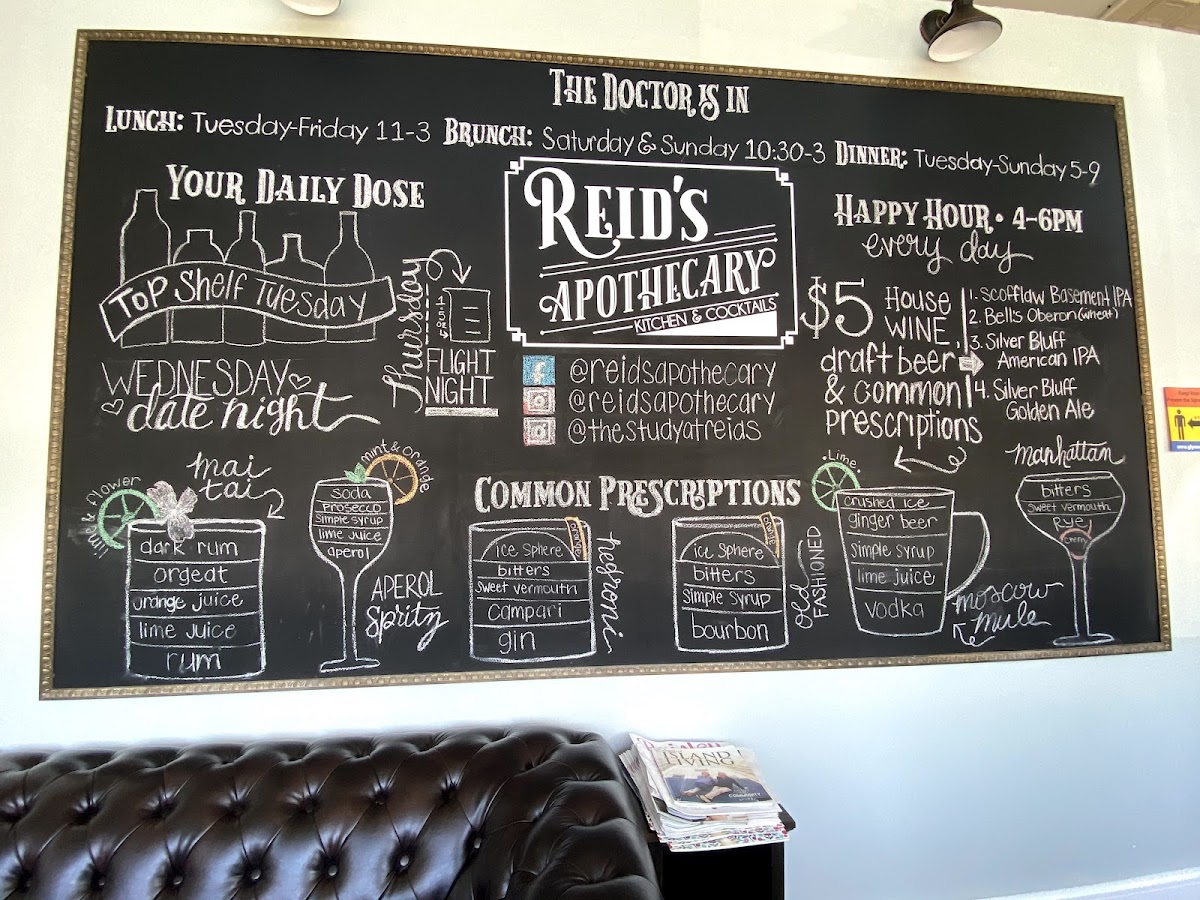 THE DOCTOR IS IN
LUNCH: Tuesday-Friday 11-3 BRUNCH: Saturday & Sunday 10:30-3 DINNER: Tuesday-Sunday 5-9
YOUR DAILY DOSE
TOP Shelf Tuesday
WEDNESDAY
date night
Thursday
1.5oz
FLIGHT
NIGHT
REID'S
APOTHECARY
KITCHEN & COCKTAILS
@reidsapothecary
@reidsapothecary
@thestudyatreids
HAPPY HOUR • 4-6PM
every day
$5 HOUSE
WINE,
draft beer
& common
prescriptions
1. Scofflaw Basement IPA
2. Bell's Oberon (wheat)
3. Silver Bluff
American IPA
4. Silver Bluff
Golden Ale
COMMON PRESCRIPTIONS
mai
tai
lime & flower
dark rum
orgeat
orange juice
lime juice
rum
mint & orange
soda
prosecco
simple syrup
lime juice
aperol
APEROL
Spritz
orange
ice sphere
bitters
sweet vermouth
campari
gin
negroni
orange
ice sphere
bitters
simple syrup
bourbon
old
FASHIONED
Lime
crushed ice
ginger beer
simple syrup
lime juice
vodka
moscow
mule
manhattan
bitters
sweet vermouth
rye
cherry
LIVING
COMMUNITY